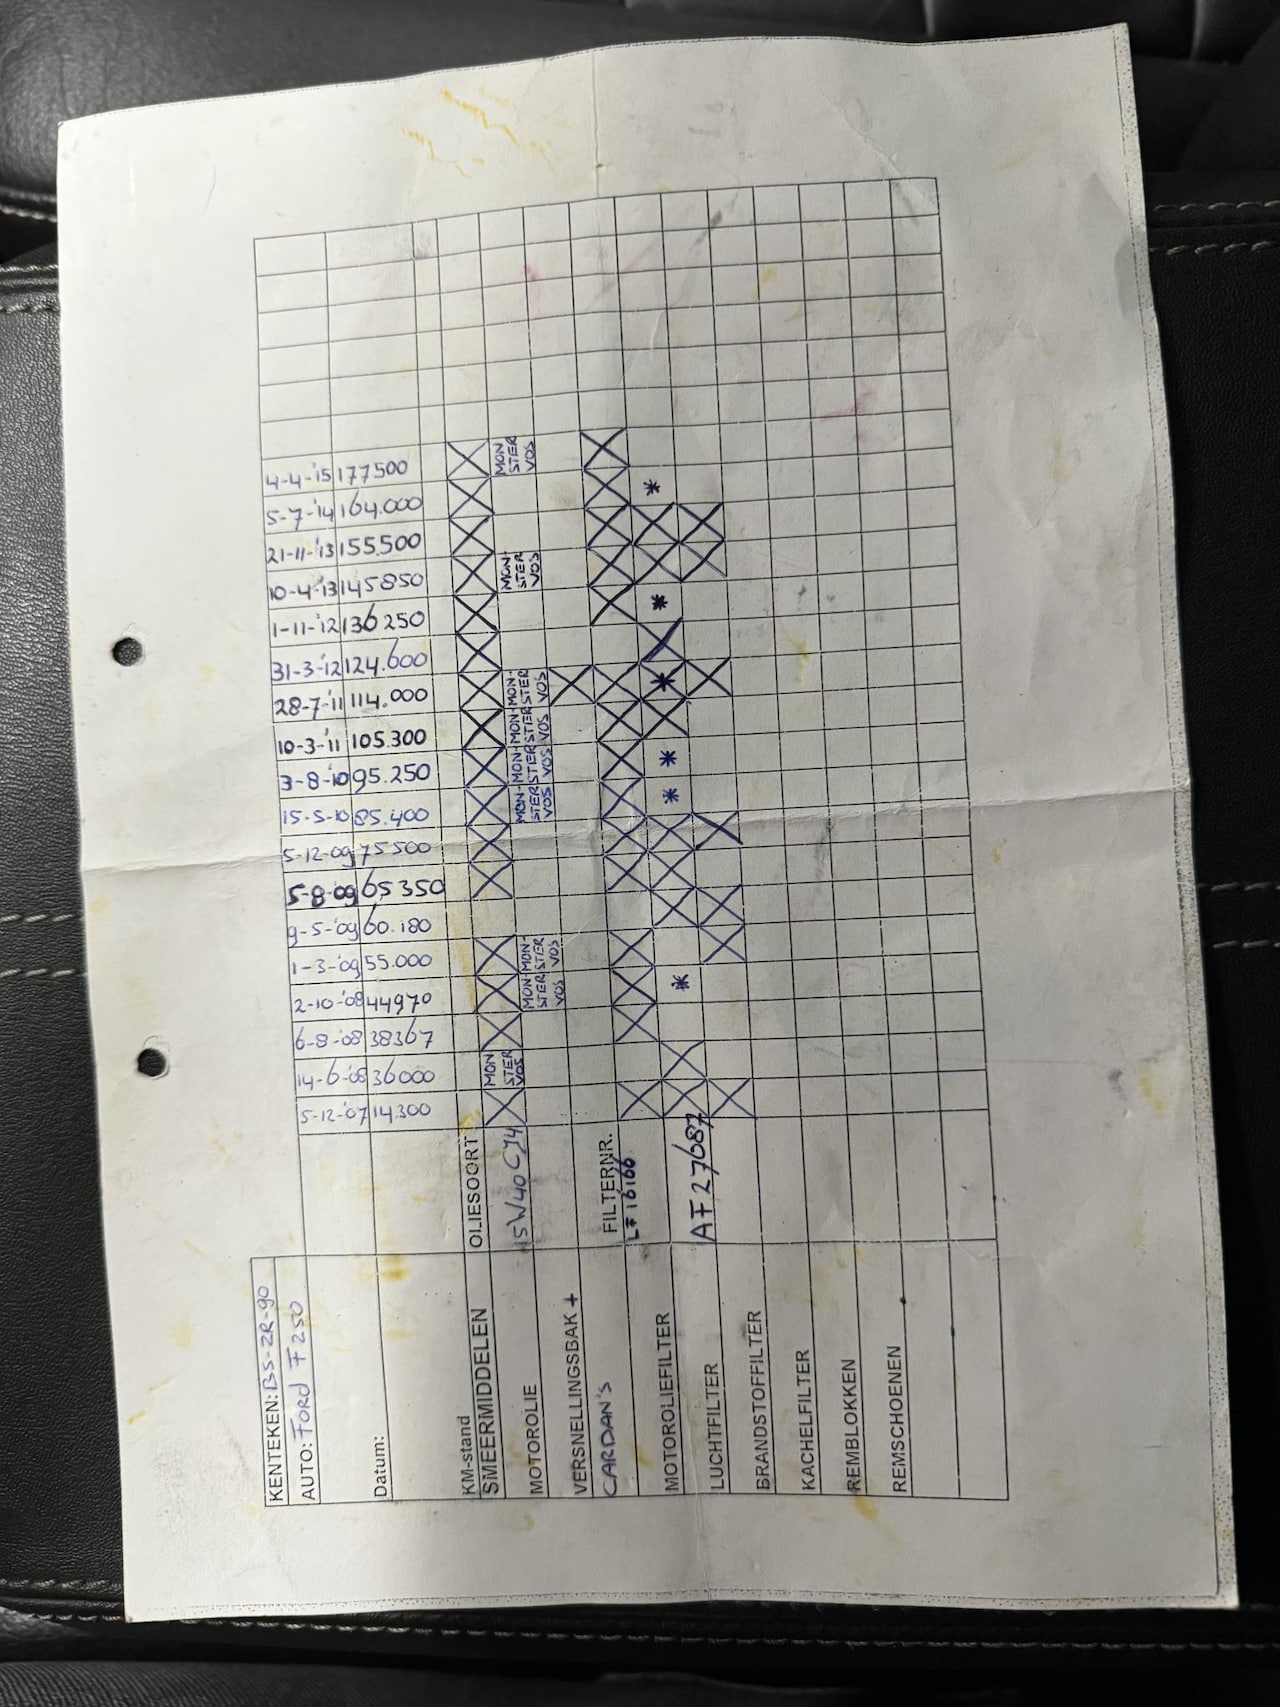 KENTEKEN: BS-ZR-90
AUTO: FORD F250
Datum: 5-12-'07 14-6-'08 6-8-'08 2-10-'08 1-3-'09 9-5-'09 5-8-09 5-12-09 15-5-10 3-8-'10 10-3-'11 28-7-'11 31-3-'12 1-11-'12 10-4-'13 21-11-'13 5-7-'14 4-4-'15
KM-stand 14.300 36000 38367 44970 55.000 60.180 65350 75500 85.400 95.250 105.300 114.000 124.600 136250 145850 155.500 164.000 177500
SMEERMIDDELEN OLIESOORT
MOTOROLIE 15W40 CJ4 X MONSTER VOS X X X X X X X X X X X X X X X X
MONSTER VOS MONSTER VOS MONSTER VOS MONSTER VOS MONSTER VOS MONSTER VOS MONSTER VOS MONSTER VOS
VERSNELLINGSBAK + X
CARDAN'S FILTERNR.
MOTOROLIEFILTER LF16166 X X X X X X X X X X X X X X X
LUCHTFILTER AF27687 X X * X X X * * X * X * X X *
BRANDSTOFFILTER X X X X X X X
KACHELFILTER
REMBLOKKEN
REMSCHOENEN